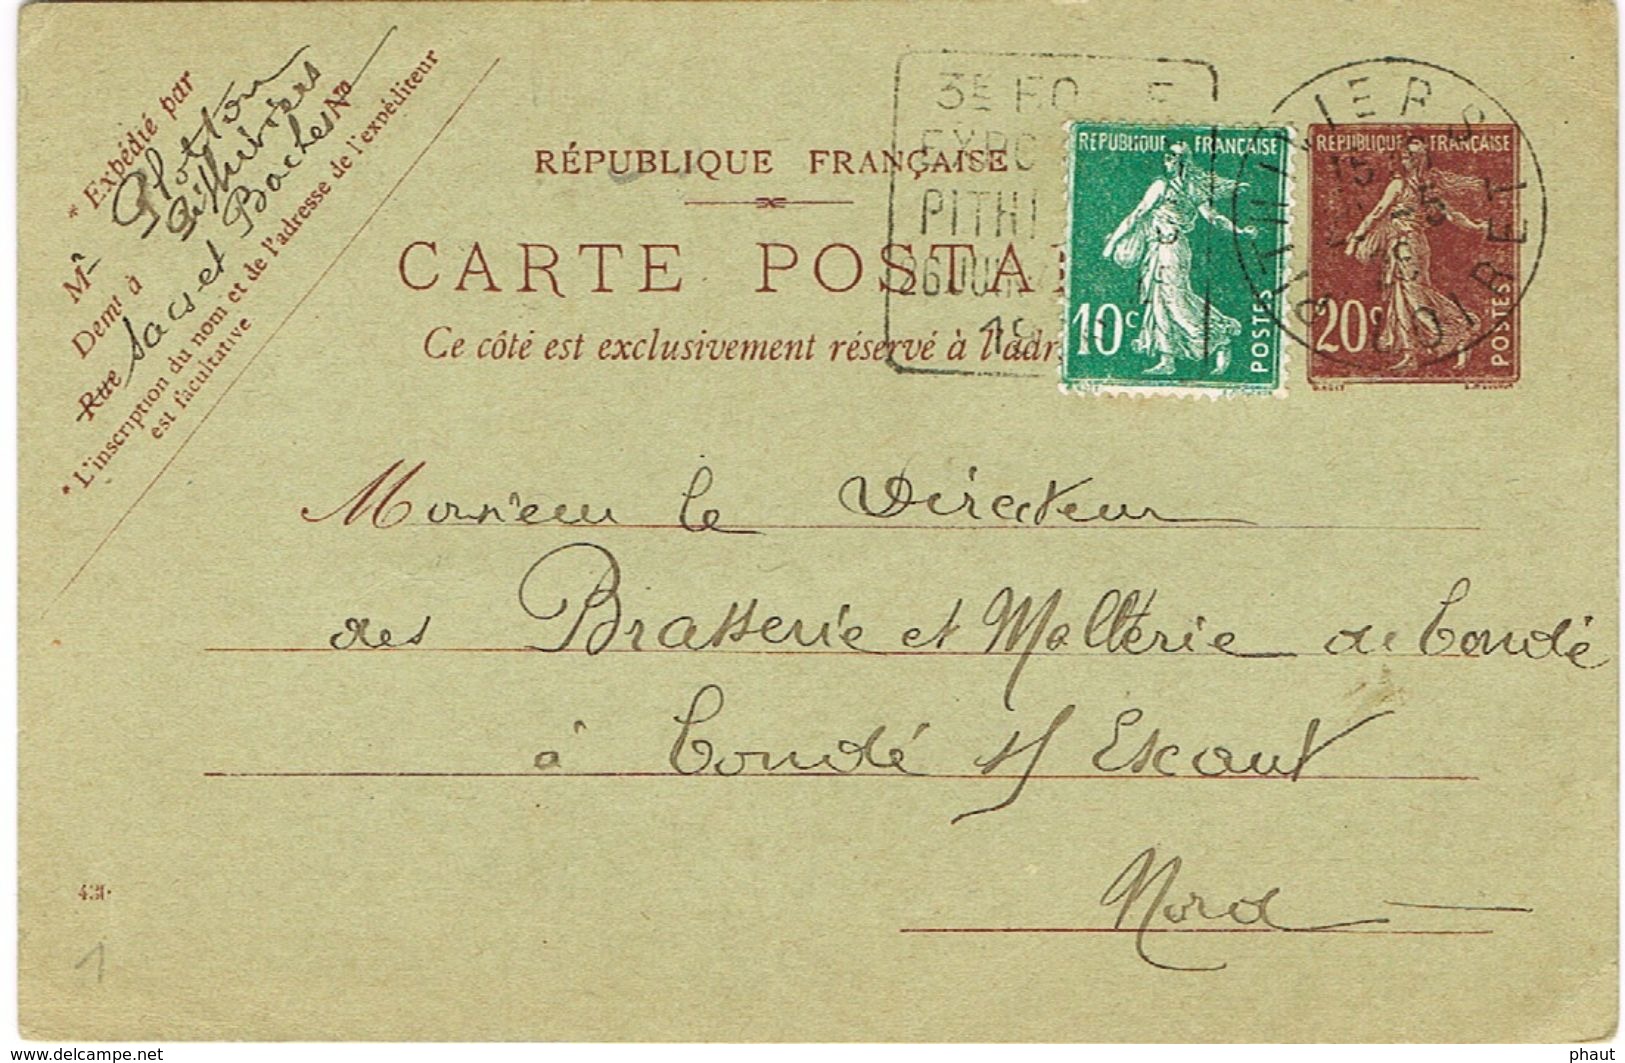 * Expédié par
Mr Plotton
Demt à Pithiviers
Rue Sacs et Baches No
* L'inscription du nom et de l'adresse de l'expéditeur
est facultative
RÉPUBLIQUE FRANÇAISE
CARTE POSTA
Ce côté est exclusivement réservé à l'adr
3E FO
EXPO
PITHI
26 JUIN
19
RÉPUBLIQUE FRANÇAISE
10c
POSTES
PITHIVIERS
15
-5
LOIRET
RÉPUBLIQUE FRANÇAISE
20c
POSTES
Monsieur le Directeur
des Brasserie et Malterie de Condé
à Condé s/ Escaut
Nord
431.
1
www.delcampe.net
phaut